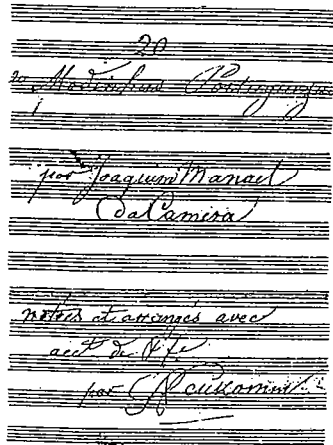 20
20 Modinhas Portuguezas
por Joaquim Manoel
Da Camera
notées et arrangés avec
acct de P. fe
par Neukomm